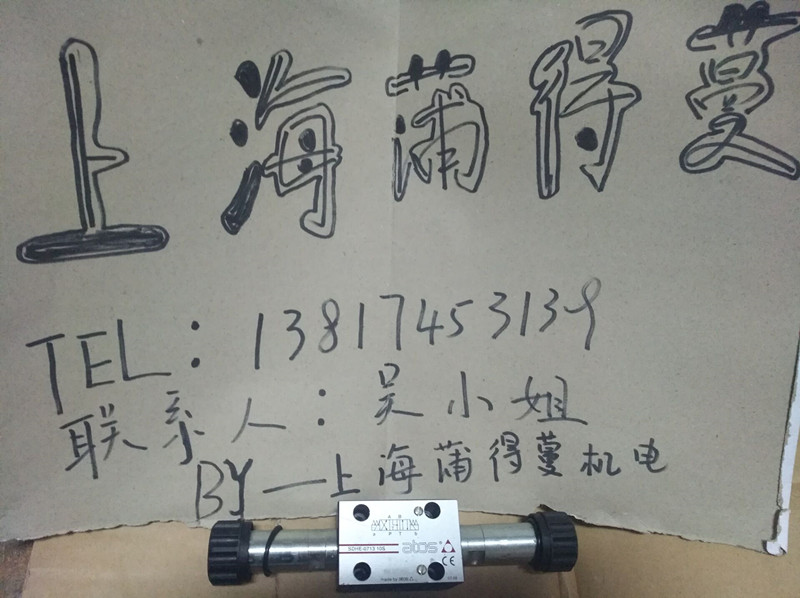 上海蒲得蔓
TEL：13817453139
联系人：吴小姐
BY—上海蒲得蔓机电
A B
P T
SDHE-0713 10S
atos
CE